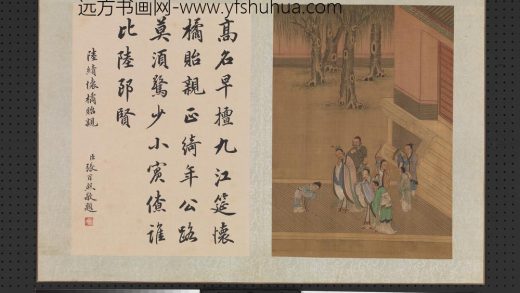 远方书画网-www.yfshuhua.com
高名早擅九江筵懷
橘貽親正綺年公路
莫須驚少小賓僚誰
比陸郎賢
陸績懷橘貽親
臣張百熙敬題